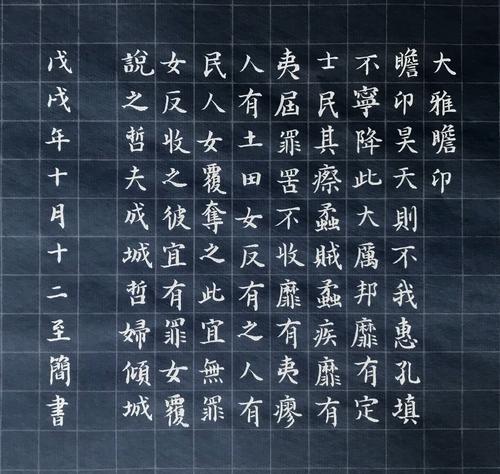 大雅瞻卬
瞻卬昊天則不我惠孔填
不寧降此大厲邦靡有定
士民其瘵蟊賊蟊疾靡有
夷屆罪罟不收靡有夷瘳
人有土田女反有之人有
民人女覆奪之此宜無罪
女反收之彼宜有罪女覆
說之哲夫成城哲婦傾城
戊戌年十月十二至簡書